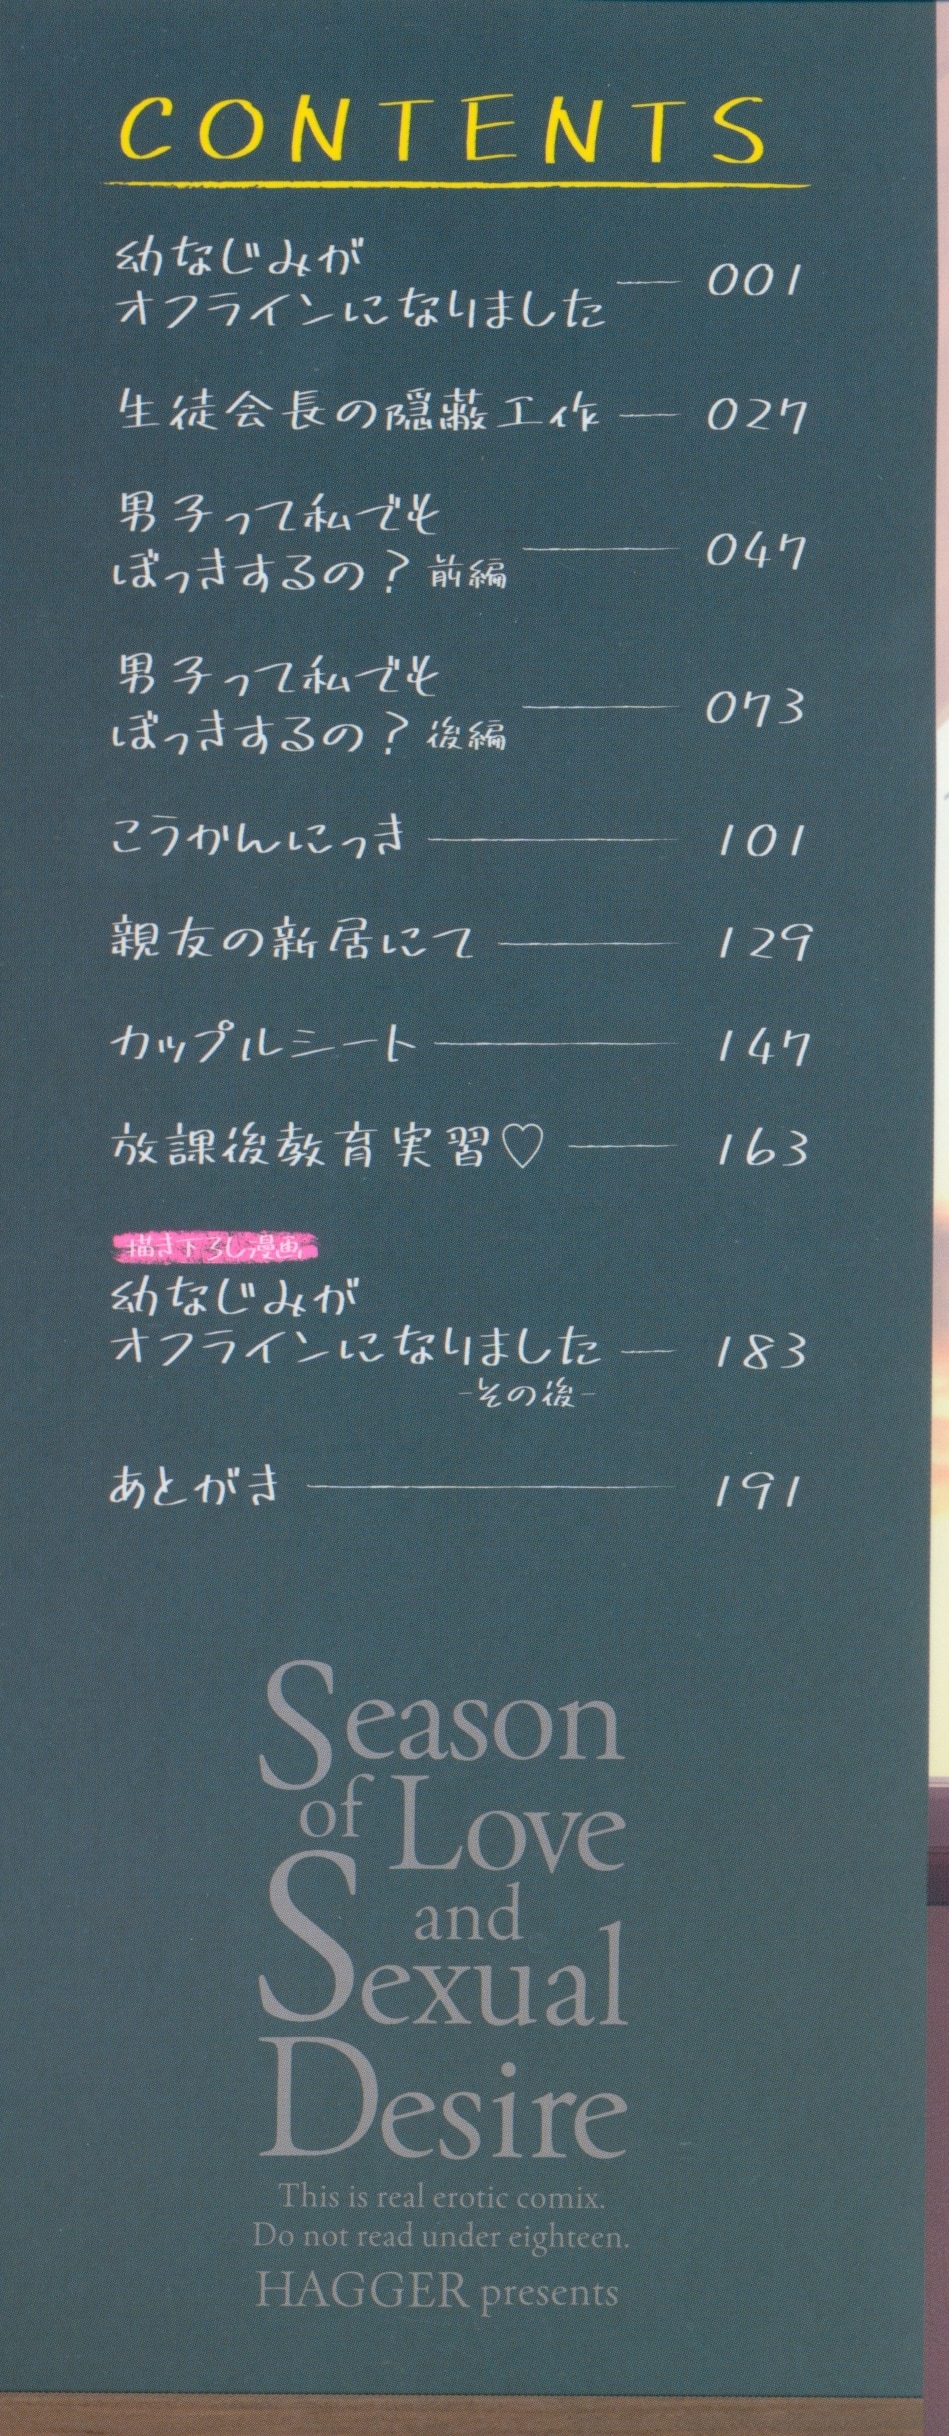 CONTENTS
幼なじみが
オフラインになりました — 001
生徒会長の隠蔽工作 — 027
男子って私でも
ぼっきするの？前編 — 047
男子って私でも
ぼっきするの？後編 — 073
こうかんにっき — 101
親友の新居にて — 129
カップルシート — 147
放課後教育実習♡ — 163
描き下ろし漫画
幼なじみが
オフラインになりました — 183
-その後-
あとがき — 191
Season
of Love
and
Sexual
Desire
This is real erotic comix.
Do not read under eighteen.
HAGGER presents